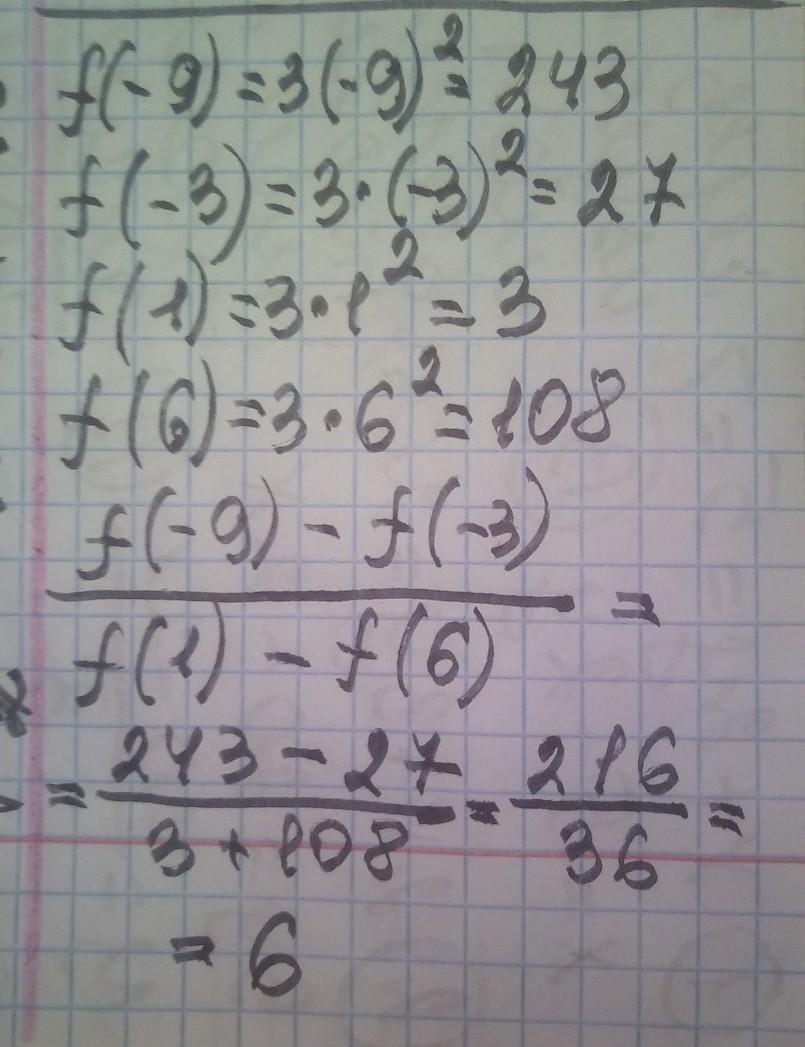 f(-9) = 3(-9)² = 243
f(-3) = 3·(-3)² = 27
f(1) = 3·1² = 3
f(6) = 3·6² = 108
f(-9) - f(-3)
f(1) - f(6)
=
= 243 - 27 / 3 + 108 = 216 / 36 =
= 6